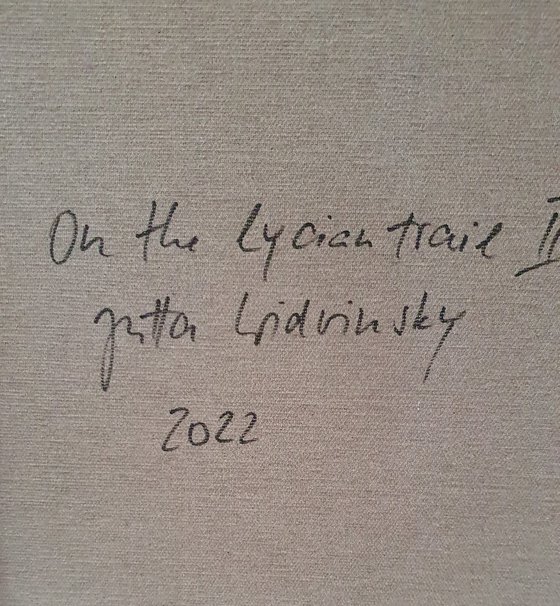 On the Lycian trail II
Jutta
2022